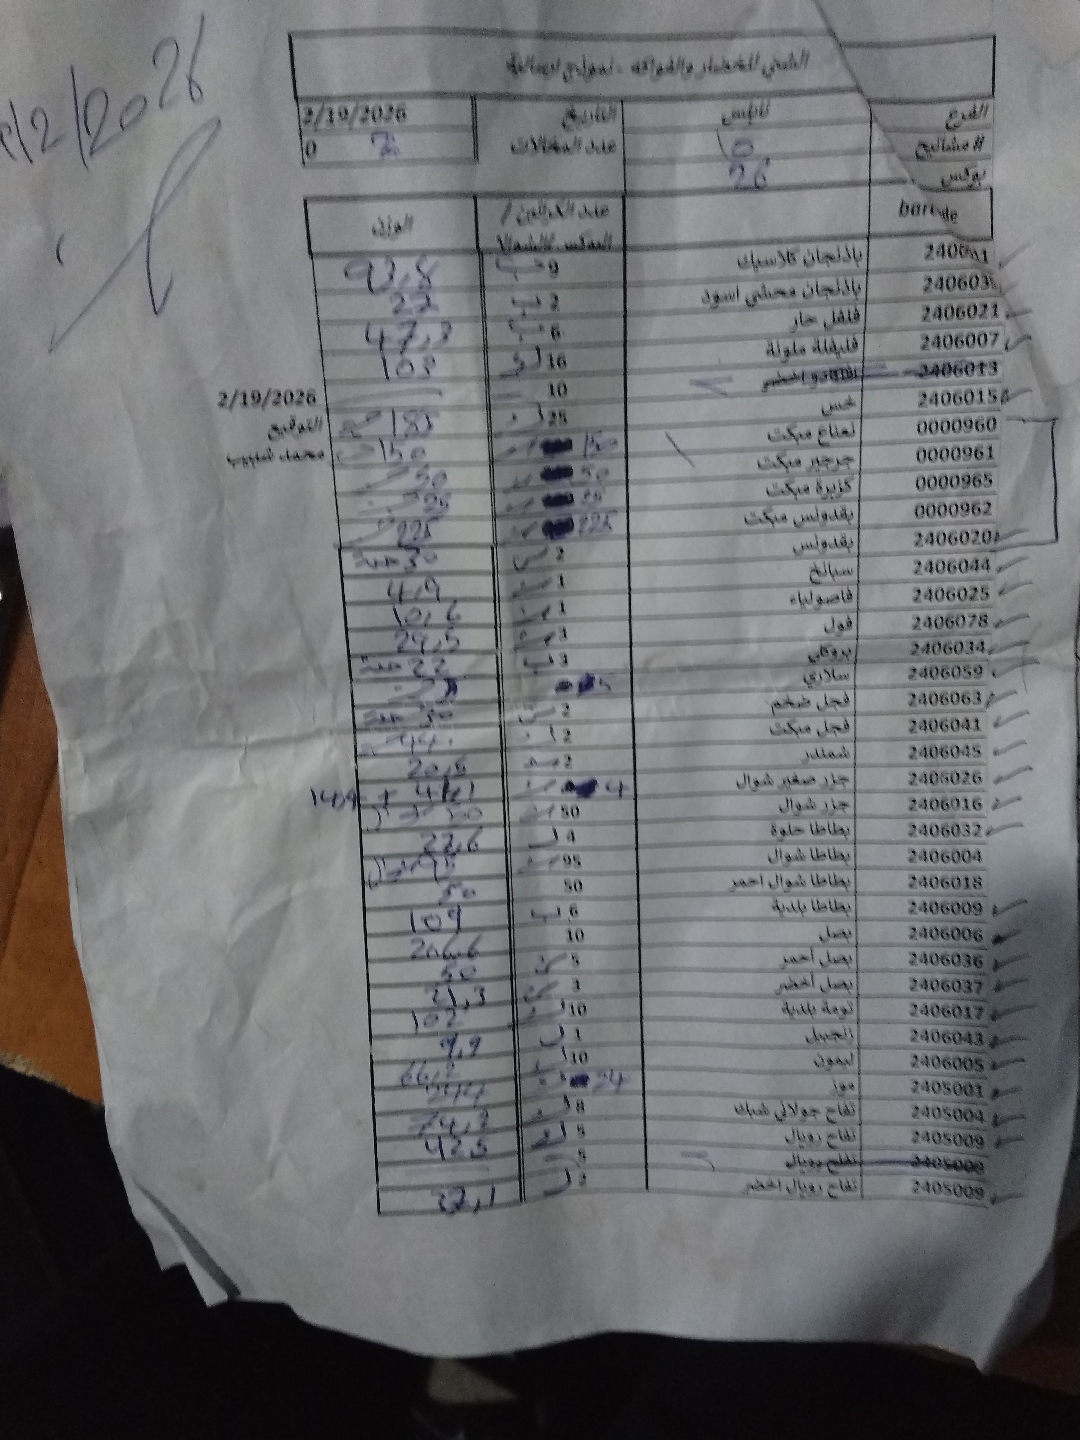 الشني للخضار والفواكه - نموذج ارسالية
الفرع نابلس التاريخ 2/19/2026
# مشاتيح عدد المخالات 0
بوكس 26
barcode عدد الكراتين / البوكس/الشوال الوزن
باذنجان كلاسيك 9 93,8
2406031 باذنجان محشي اسود 2 22
2406021 فلفل حار 6 47,3
2406007 فليفلة ملونة 16 103
2406013 اخضر 10
2406015 خس 25 185
0000960 نعناع مبكت 150 150
0000961 جرجير مبكت 50 50
0000965 كزبرة مبكت 25 25
0000962 بقدونس مبكت 225 225
2406020 بقدونس 2 30
2406044 سبانخ 1 4,9
2406025 فاصولياء 1 10,6
2406078 فول 3 29,5
2406034 بروكلي 3 22
2406059 سلاري 5
2406063 فجل ضخم 2 30
2406041 فجل مبكت 2
2406045 شمندر 2 20,8
2406026 جزر صغير شوال 4
2406016 جزر شوال 50 50
2406032 بطاطا حلوة 4 22,6
2406004 بطاطا شوال 95 95
2406018 بطاطا شوال احمر 50 50
2406009 بطاطا بلدية 6 109
2406006 بصل 10 206,6
2406036 بصل أحمر 5 50
2406037 بصل أخضر 3 21,3
2406017 تومة بلدية 10 102
2406043 زنجبيل 1 9,9
2406005 ليمون 10 66,2
2405001 موز 24 244
2405004 تفاح جولاني شبك 8 74,2
2405009 تفاح رويال 5 42,5
2405009 تفاح رويال 5
2405009 تفاح رويال اخضر 2
2/19/2026
التوقيع
محمد شبيب